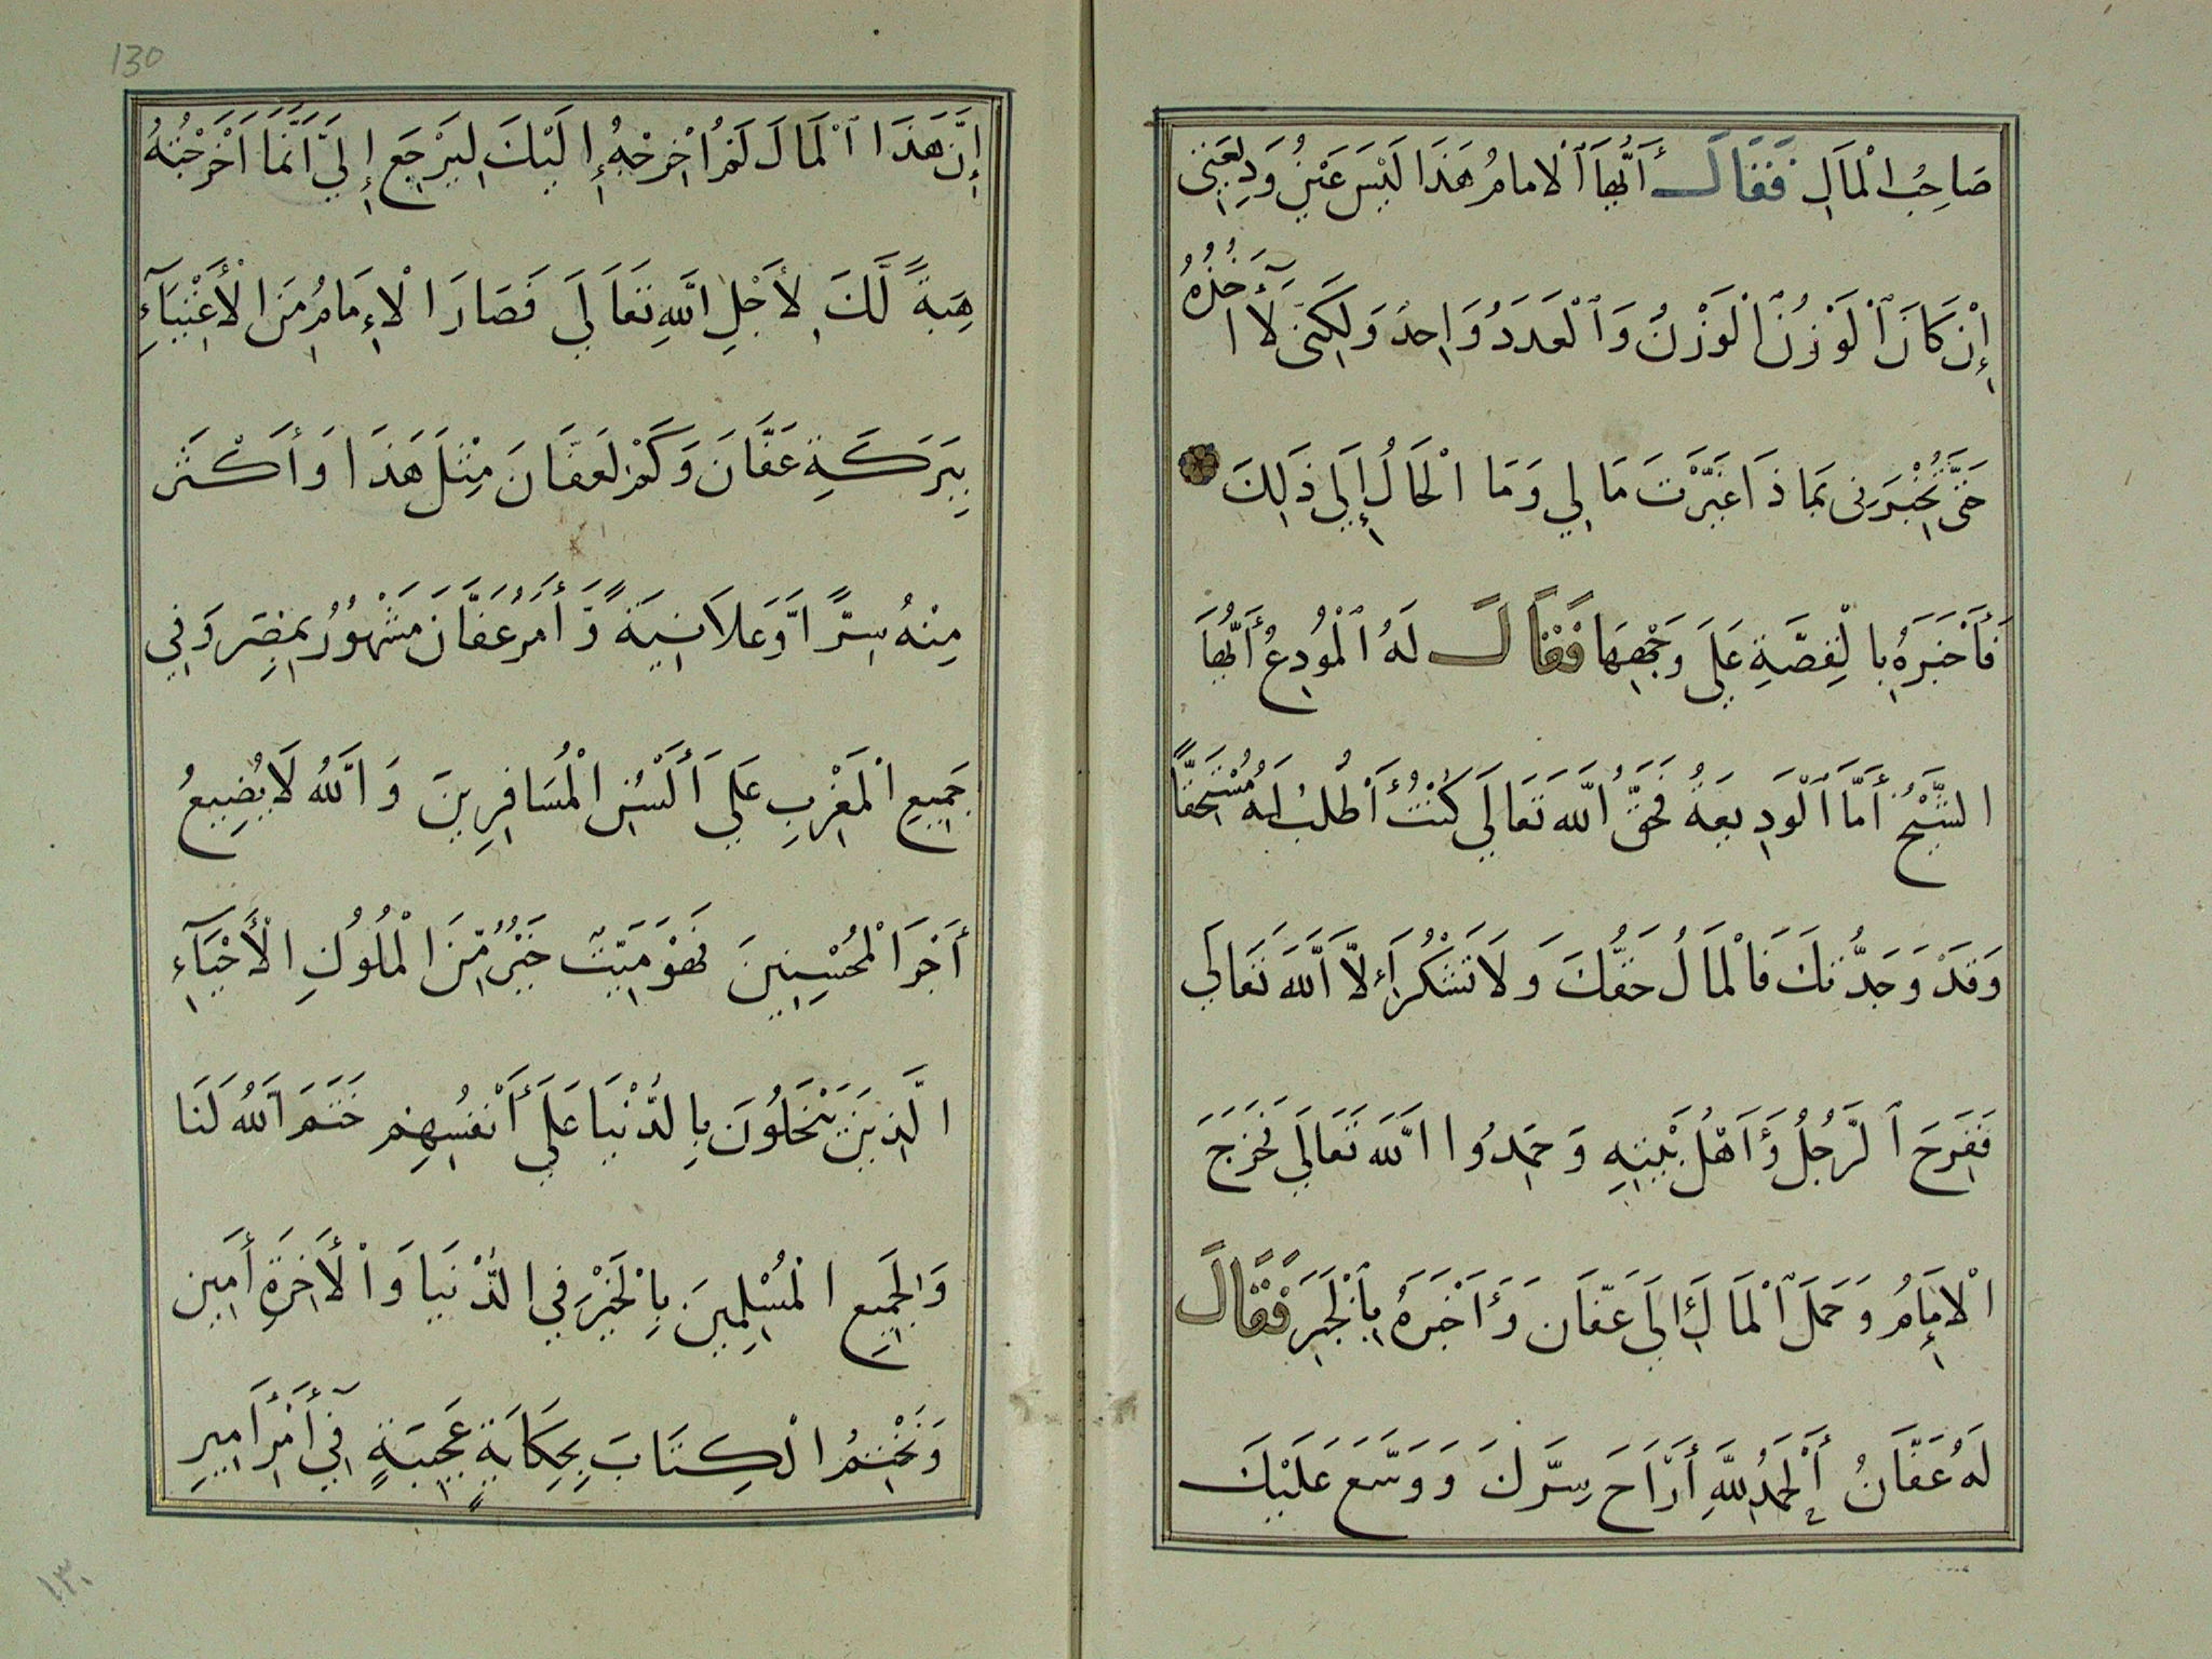 صَاحِبُ الْمَالِ فَقَالَ أَيُّهَا ٱلْامامُ هَذَا لَيْسَ عَيْنُ وَدِيعَتِي
إِنْ كَانَ ٱلْوَزْنُ ٱلْوَزْنُ وَٱلْعَدَدُ وَاحِدٌ وَلَكِنَّنِي لَا آخُذُهُ
حَتَّى تُخْبِرَنِي بِمَاذَا غَيَّرْتَ مَالِي وَمَا الْحَالُ إِلَي ذَلِكَ
فَأَخْبَرَهُ بِالْقِصَّةِ عَلَي وَجْهِهَا فَقَالَ لَهُ ٱلْمُودِعُ أَيُّهَا
الشَّيْخُ أَمَّا ٱلْوَدِيعَةُ فَحَقُّ اللَّه تَعَالَي كُنْتُ أَطْلُبُ لَهُ مُسْتَحِقًّا
وَقَدْ وَجَدْتُكَ فَالْمَالُ حَقُّكَ وَلَا تَشْكُرْ إِلَّا اللَّهَ تَعَالَي
فَفَرِحَ ٱلرَّجُلُ وَأَهْلُ بَيْتِهِ وَحَمِدُوا اللَّهَ تَعَالَي فَخَرَجَ
الْإِمَامُ وَحَمَلَ ٱلْمَالَ إِلَي عَفَّانَ وَأَخْبَرَهُ بِٱلْخَبَرِ فَقَالَ
لَهُ عَفَّانُ أَلْحَمْدُ لِلَّهِ أَرَاحَ سِرَّكَ وَوَسَّعَ عَلَيْكَ
130
إِنَّ هَذَا ٱلْمَالَ لَمْ أُخْرِجْهُ إِلَيْكَ لِيَرْجَعَ إِلَيَّ أَنَّمَا أَخْرَجْتُهُ
هِبَةً لَّكَ لِأَجْلِ اللَّهِ تَعَالَي فَصَارَ الْإِمَامُ مَنَ الْأَغْنِيَآءِ
بِبَرَكَةِ عَفَّانَ وَكَمْ لعَفَّانَ مِثْلَ هَذَا وَأَكْثَر
مِنْهُ سِرًّا وَّعَلَانِيَةً وَّأَمْرُ عَفَّانَ مَشْهُوْرٌ بِمِصْرَ وَفِي
جَمِيعِ الْمَغْرِبِ عَلَي أَلْسُنِ الْمُسَافِرِينَ وَاللَّهُ لَا يُضِيعُ
أَجْرَ الْمُحْسِنِينَ فَهْوَ مَيِّتٌ خَيْرٌ مِّنَ الْمُلُوكِ الْأَحْيَآءِ
الَّذِينَ يَبْخَلُونَ بِالدُّنْيَا عَلَي أَنْفُسِهِمْ خَتَمَ ٱللَّهُ لَنَا
وَلِجَمِيعِ الْمُسْلِمِينَ بِالْخَيْرِ فِي الدُّنْيَا وَالْأَخِرَةِ أَمِين
وَنَخْتِمُ الْكِتَابَ بِحِكَايَةٍ عَجِيبَةٍ فِي أَمْرِ أَمِيرِ
١٣٠